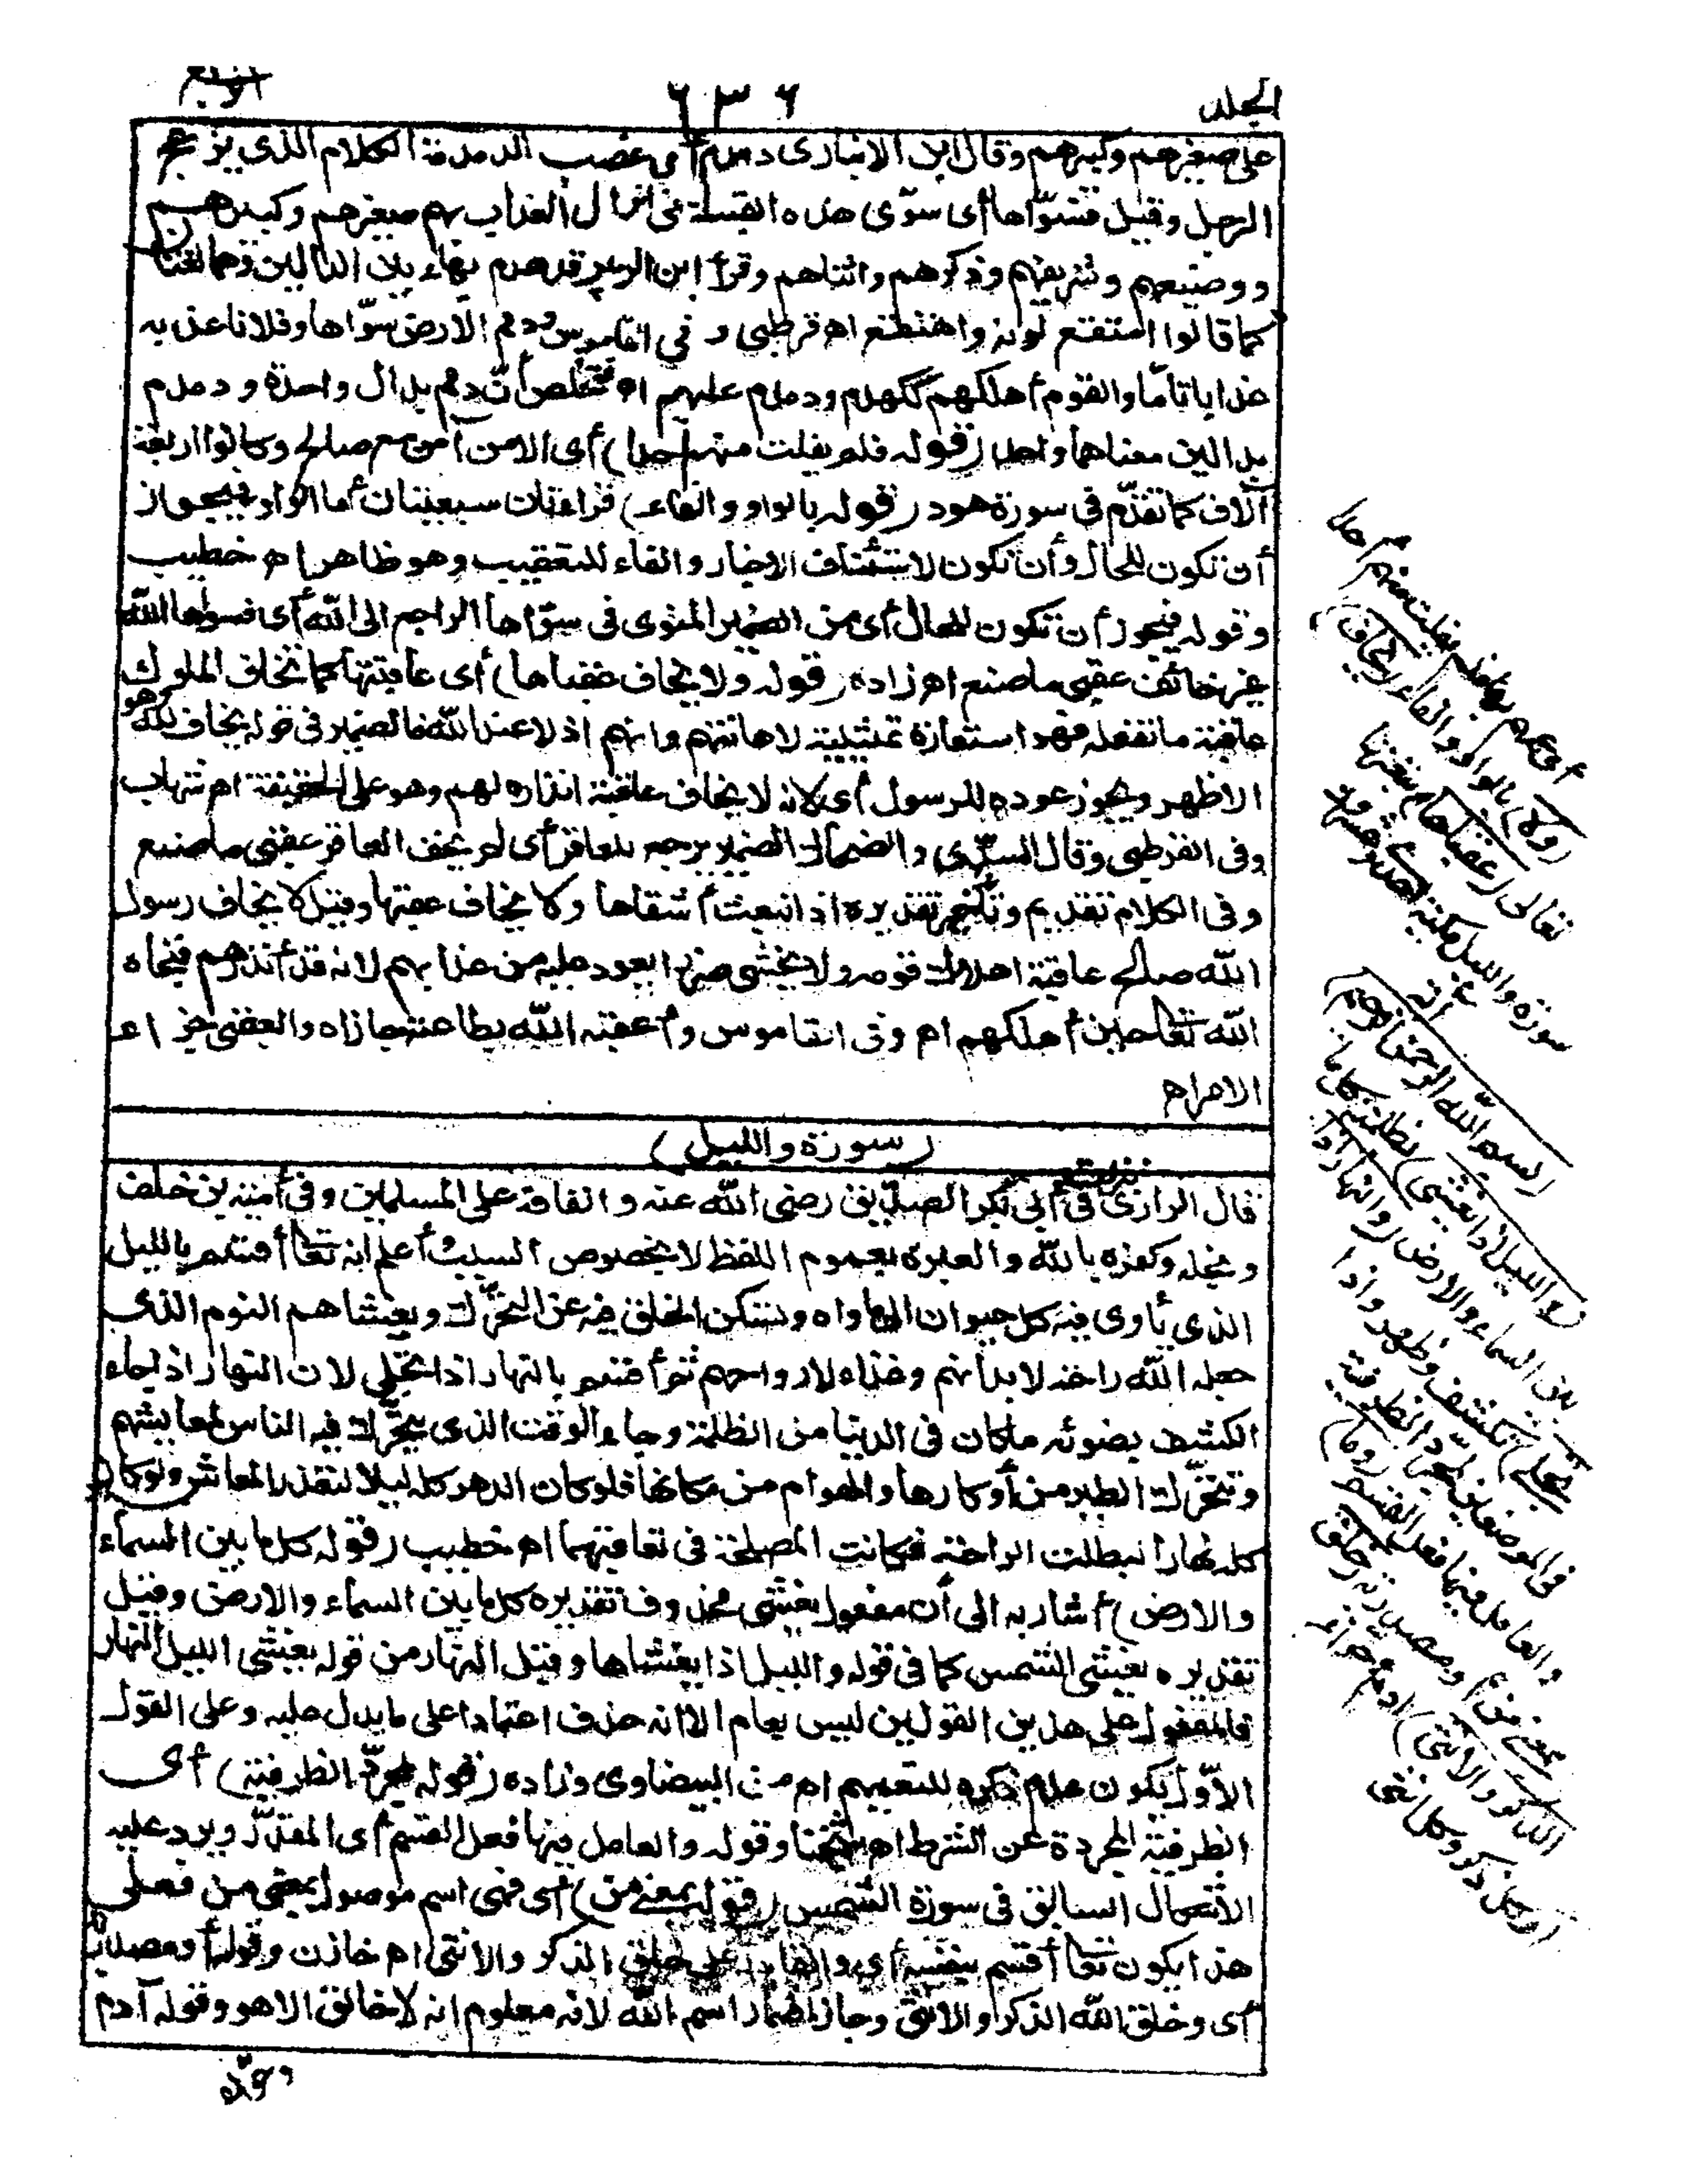 الجلد
٦٣٦
الرابع
على صغيرهم وكبيرهم وقال ابن الانبارى دمدم أى غضب الدمدمة الكلام الذى يزعج
الرجل وقيل فسوّاها أى سوّى هذه القبيلة فى انزال العذاب بهم صغيرهم وكبيرهم
ووضيعهم وشريفهم وذكرهم وانثاهم وقرأ ابن الزبير فدهدم بهاء بين الدالين وهما لغتان
كما قالوا امتقع لونه واهتقع اه قرطبى و فى القاموس ودمم الارض سوّاها وفلانا عذبه
عذابا تامّا والقوم أهلكهم كدمدم ودمدم عليهم اه فتخلص أنّ دمم بدال واحدة و دمدم
بدالين معناهما واحد (قوله فلم يفلت منهم أحدا) أى الا من آمن مع صالح وكانوا اربعة
آلاف كما تقدّم فى سورة هود (قوله بالواو والفاء) قراءتان سبعيتان أما الواو فيجوز
أن تكون للحال وأن تكون لاستئناف الاخبار والفاء للتعقيب وهو ظاهر اه خطيب
وقوله فيجوز أن تكون للحال أى من الضمير المنوى فى سوّاها الراجع الى الله أى فسوّاها الله
غير خائف عقبى ما صنع اه زاده (قوله ولا يخاف عقباها) أى عاقبتها كما تخاف الملوك
عاقبة ما تفعله فهو استعارة تمثيلية لاهانتهم وانهم اذلاء عند الله فالضمير فى قوله يخاف لله وهو
الاظهر ويجوز عوده للرسول أى لانه لا يخاف عاقبة انذاره لهم وهو على الحقيقة اه شهاب
وفى القرطبى وقال السدّى والضحاك الضمير يرجع للعاقر أى لم يخف العاقر عقبى ما صنع
وفى الكلام تقديم وتأخير تقديره اذ انبعث أشقاها ولا يخاف عقباها وقيل لا يخاف رسول
الله صالح عاقبة اهلاك قومه ولا يخشى ضررا يعود عليه من عذابهم لانه قد أنذرهم فنجاه
الله تعالى حين أهلكهم اه وفى القاموس وأعقبه الله بطاعته جازاه والعقبى جزاء
الامر اه
(سورة والليل)
قال الرازى نزلت فى أبى بكر الصديق رضى الله عنه وانفاقه على المسلمين وفى أمية بن خلف
وبخله وكفره بالله والعبرة بعموم اللفظ لا بخصوص السبب وأعلم انه تعالى أقسم بالليل
الذى يأوى فيه كل حيوان الى مأواه وتسكن الخلق فيه عن التحرّك ويغشاهم النوم الذى
جعله الله راحة لابدانهم وغذاء لارواحهم ثم أقسم بالنهار اذا تجلى لان النهار اذا جاء
انكشف بضوئه ما كان فى الدنيا من الظلمة وجاء الوقت الذى يتحرّك فيه الناس لمعايشهم
وتتحرّك الطير من أوكارها والهوام من مكانها فلو كان الدهر كله ليلا لتعذر المعاش ولو كان
كله نهارا لبطلت الراحة فكانت المصلحة فى تعاقبهما اه خطيب (قوله كل ما بين السماء
والارض) أشار به الى أن مفعول يغشى محذوف تقديره كل ما بين السماء والارض وقيل
تقديره يغشى الشمس كما فى قوله والليل اذا يغشاها وقيل النهار من قوله يغشى الليل النهار
فالمفعول على هذين القولين ليس بعام الا انه حذف اعتمادا على ما يدل عليه وعلى القول
الاوّل يكون عدم ذكره للتعميم اه من البيضاوى وزاده (قوله لمجرّد الظرفية) أى
الظرفية المجردة عن الشرط اه شيخنا وقوله والعامل فيها فعل القسم أى المقدّر ويرد عليه
الاشكال السابق فى سورة الشمس (قوله بمعنى من) أى فهى اسم موصول بمعنى من فعلى
هذا يكون تعالى أقسم بنفسه أى والقادر على خلق الذكر والانثى اه خازن وقوله أو مصدرية
أى وخلق الله الذكر والانثى وجاز اضمار اسم الله لانه معلوم انه لا خالق الا هو وقوله آدم
وحوّاء
أى عمهم بها فلم يفلت منهم أحدا
(ولا) بالواو والفاء (يخاف)
تعالى (عقباها) تبعتها
سورة والليل مكية احدى وعشرون
آية
(بسم الله الرحمن الرحيم)
(والليل اذا يغشى) بظلمته كل ما
بين السماء والارض (والنهار اذا
تجلى) تكشف وظهر واذا
فى الموضعين لمجرّد الظرفية
والعامل فيها فعل القسم (وما)
بمعنى من أو مصدرية (خلق
الذكر والانثى) آدم وحواء
أو كل ذكر وكل انثى